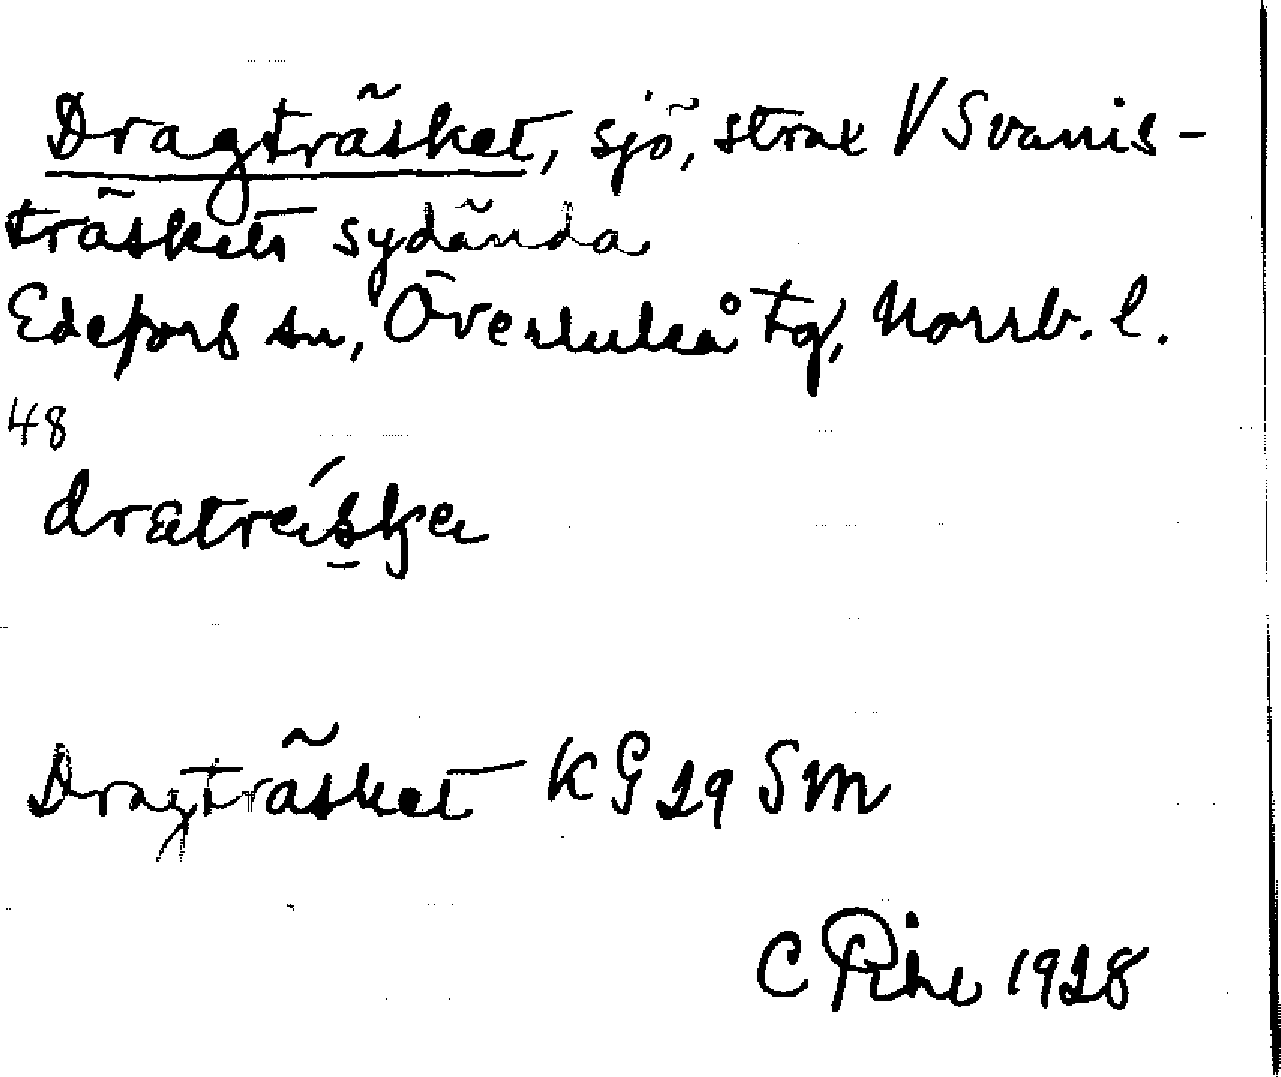 Dragträsket, sjö, strax V Svanis-
träskets sydända
Edefors sn, Överluleå tg, Norrb. l.
48
Dragträsket KG 29 Sm
C 1928